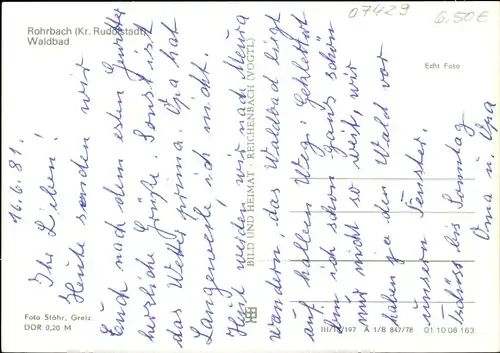 Rohrbach (Kr. Rudolstadt)
Waldbad
07429
6,50€
Echt Foto
16.6.81.
Ihr Lieben!
Heute senden wir
Euch nach dem ersten Gewitter
herzliche Grüße. Sonst ist
das Wetter prima. Opa hat
Langeweile, ich nicht.
Heut werden wir nach Meura
wandern, das Waldbad liegt
auf halbem Weg. Geklettert
bin ich schon ganz schön
nur nicht so weit, wir
haben ja den Wald vor
unserm Fenster.
Tschüss bis Sonntag
Oma u. Opa
BILD UND HEIMAT · REICHENBACH (VOGTL)
Foto Stöhr, Greiz
DDR 0,20 M
III/18/197 A 1/B 847/78 01 10 08 163